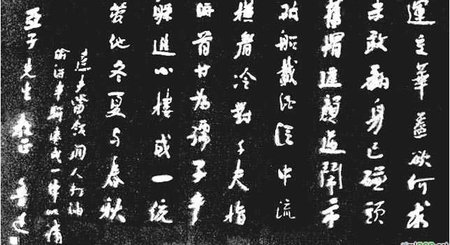 運交華蓋欲何求
未敢翻身已碰頭
舊帽遮顏過鬧市
破船載酒泛中流
橫眉冷對千夫指
俯首甘為孺子牛
躲進小樓成一統
管他冬夏与春秋
達夫賞飯閑人打油
偷得半聯湊成一律以請
亞子先生教正 魯迅